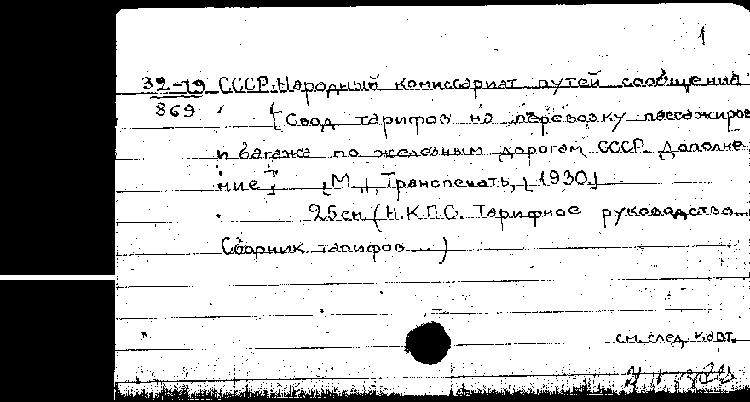 1
32-19 СССР. Народный комиссариат путей сообщения
869 [Свод тарифов на перевозку пассажиров
и багажа по железным дорогам СССР. Дополне-
ние]. [М.], Транспечать, [1930]
25см (Н.К.П.С. Тарифное руководство...
Сборник тарифов...)
см. след. карт.